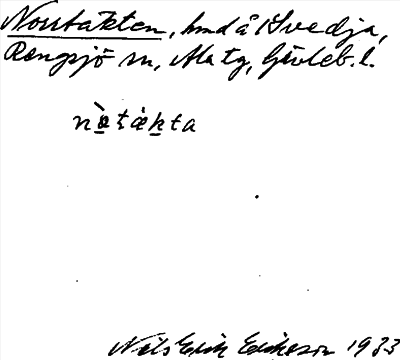 Norrtäkten, hmd å Svedja,
Rengsjö sn, Alatg, Gävleb. l.
nὰṭἀkta
Nils Erik Eriksson 1933